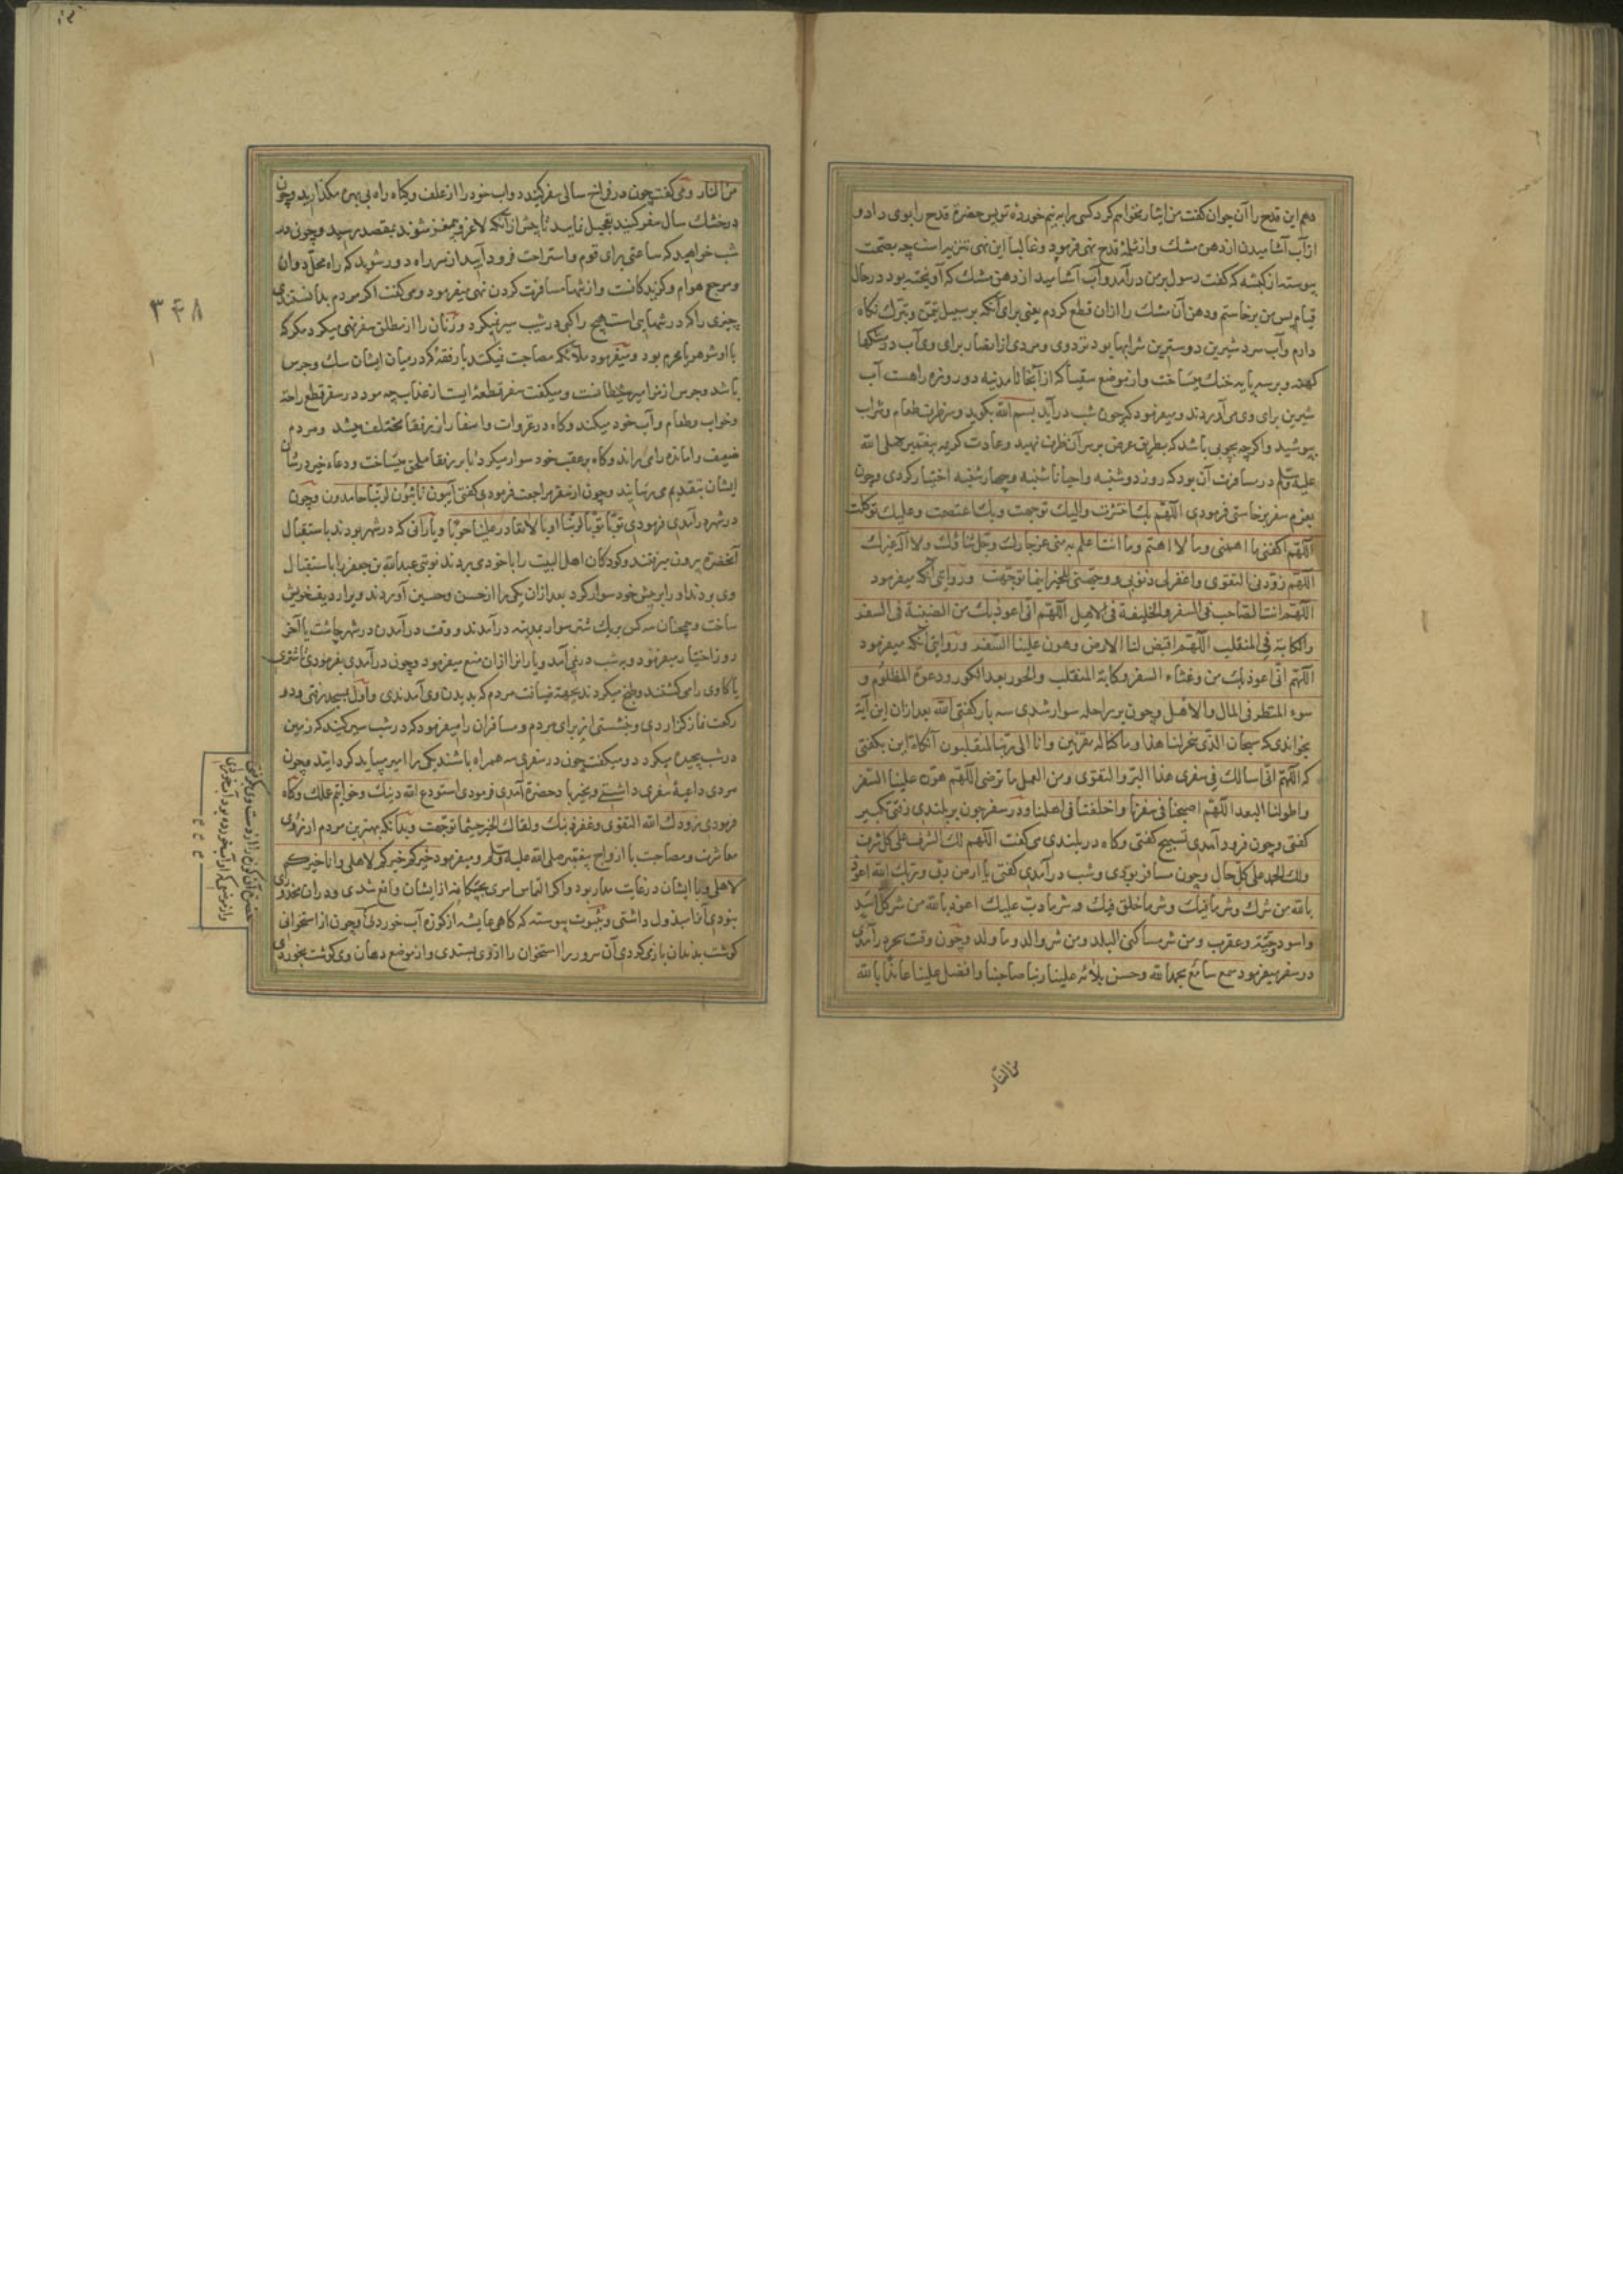 دهم این قدح را آن جوان کفت من ایثار نخواهم کرد کسی را به نیم خورده تو پس حضرة قدح را بوی داد و
از آب آشامیدن از دهن مشک و از ثلمهٔ قدح نهی فرمود و غالبا این نهی تنزیه است چه بصحت
پیوسته از کبشه که کفت رسول بر من در آمد و آب آشامید از دهن مشک که آویخته بود در حال
قیام پس من برخاستم و دهن آن مشک را ازان قطع کردم یعنی برای آنکه بر سبیل تیمن و تبرک نکاه
دارم و آب سرد شیرین دوسترین شرابها بود نزد وی و مردی از انصار برای وی آب در مشکها
کهنه و بر سه پایه خنک میساخت و از موضع سقیا که از آنجا تا مدینه دو روزه راهست آب
شیرین برای وی می آوردند و میفرمود که چون شب در آید بسم الله بکوید و سر ظرف طعام و شراب
بپوشید و اکرچه بچوبی باشد که بطریق عرض بر سر آن ظرف نهید و عادت کریمه پیغمبر صلی الله
علیه وسلم در مسافرت آن بود که روز دوشنبه و احیانا شنبه و چهارشنبه اختیار کردی و چون
بعزم سفر برخاستی فرمودی اللهم بک انتشرت والیک توجهت وبک اعتصمت وعلیک توکلت
اللهم اکفنی ما اهمنی وما لا اهتم وما انت اعلم به منی عز جارک وجل ثناؤک ولا اله غیرک
اللهم زودنی التقوی واغفرلی ذنوبی ووجهنی للخیر اینما توجهت و روایتی آنکه میفرمود
اللهم انت الصاحب فی السفر والخلیفة فی الاهل اللهم انی اعوذ بک من الضبنة فی السفر
والکابة فی المنقلب اللهم اقبض لنا الارض وهون علینا السفر و روایتی آنکه میفرمود
اللهم انی اعوذ بک من وعثاء السفر وکابة المنقلب والحور بعد الکور ودعوة المظلوم و
سوء المنظر فی المال والاهل و چون بر راحله سوار شدی سه بار کفتی الله بعد ازان این آیة
بخواندی که سبحان الذی سخر لنا هذا وما کنا له مقرنین وانا الی ربنا لمنقلبون آنکاه این بکفتی
که اللهم انی اسالک فی سفری هذا البر والتقوی ومن العمل ما ترضی اللهم هون علینا السفر
واطو لنا البعد اللهم اصحبنا فی سفرنا واخلفنا فی اهلنا و در سفر چون بر بلندی رفتی تکبیر
کفتی و چون فرود آمدی تسبیح کفتی و کاه در بلندی می کفت اللهم لک الشرف علی کل شرف
ولک الحمد علی کل حال و چون مسافر بودی و شب در آمدی کفتی یا ارض ربی وربک الله اعوذ
بالله من شرک وشر ما فیک وشر ما خلق فیک وشر ما دب علیک اعوذ بالله من شر کل اسد
واسود وحیة وعقرب ومن شر ساکن البلد ومن شر والد وما ولد و چون وقت سحر در آمدی
در سفر میفرمود سمع سامع بحمد الله وحسن بلائه علینا ربنا صاحبنا وافضل علینا عائذا بالله
من النار
من النار و می کفت چون در فراخ سالی سفر کنید دواب خود را از علف و کیاه راه بی بهره مکذارید و چون
در خشک سال سفر کنید تعجیل نمایید تا پیش از آنکه لاغر و بیمغز شوند بمقصد رسید و چون در
شب خواهید که ساعتی برای قوم و استراحت فرود آیید از سر راه دور شوید که راه محل دوان
و مرجع هوام و کزندکانست و از تنها مسافرت کردن نهی میفرمود و می کفت اکر مردم بدانستندی
چیزی را که در تنهایی است هیچ راکبی در شب سیر نمیکرد و زنان را از مطلق سفر نهی میکرد مکر که
با او شوهر یا محرم بود و میفرمود ملائکه مصاحبت نمیکنند با رفقهٔ که در میان ایشان سک و جرس
باشد و جرس از مزامیر شیطانست و میکفت سفر قطعهٔ ایست از عذاب چه مرد در سفر قطع راحة
و خواب و طعام و آب خود میکند و کاه در غزوات و اسفار از رفقا مختلف میشد و مردم
ضعیف و امانده را می راند و کاه بر عقب خود سوار میکرد تا بر رفقا ملحق میساخت و دعاء خیر در شان
ایشان بتقدیم می رسانید و چون از سفر مراجعت فرمودی کفتی آیبون تائبون لربنا حامدون و چون
در شهر در آمدی فرمودی توبا توبا لربنا اوبا لا یغادر علینا حوبا و یارانی که در شهر بودند باستقبال
آنحضرة بیرون میرفتند و کودکان اهل البیت را با خود می بردند نوبتی عبدالله بن جعفر را باستقبال
وی بردند او را بر پیش خود سوار کرد بعد ازان یکی را از حسن و حسین آوردند ویرا ردیف خویش
ساخت و همچنان سه کس بر یک شتر سوار بمدینه در آمدند و وقت در آمدن در شهر چاشت یا آخر
روز اختیار میفرمود و به شب در نمی آمد و یارانرا ازان منع میفرمود و چون در آمدی بفرمودی تا شتری
یا کاوی را می کشتند و طبخ میکردند بجهة ضیافت مردم که بدیدن وی آمدندی و اول بمسجد رفتی و دو
رکعت نماز کزاردی و بنشستی از برای مردم و مسافران را میفرمود که در شب سیر کنید که زمین
در شب پیچیده میکردد و میکفت چون در سفری سه همراه باشند یکی را امیر میباید کردانید و چون
مردی داعیهٔ سفری داشتی و بحضرة آمدی فرمودی استودع الله دینک وخواتیم عملک و کاه
فرمودی زودک الله التقوی وغفر ذنبک ولقاک الخیر حیثما توجهت و بدانکه بهترین مردم از روی
معاشرت و مصاحبت با ازواج پیغمبر صلی الله علیه وسلم و میفرمود خیرکم خیرکم لاهلی وانا خیرکم
لاهلی و با ایشان در غایت مدارا بود و اکر التماس امری از ایشان واقع شدی و دران محذوری
نبودی آنرا مبذول داشتی و بثبوت پیوسته که کاهی عایشه از کوزه آب خوردی و چون از استخوانی
کوشت بدندان باز می کردی آن سرور را استخوان را از وی بستدی و از موضع دهان وی کوشت بخوردی
حضرت آن کوزه را از دست وی کرفتی
و از موضعی که او آب خورده بود آب خوردی
۳۴۸